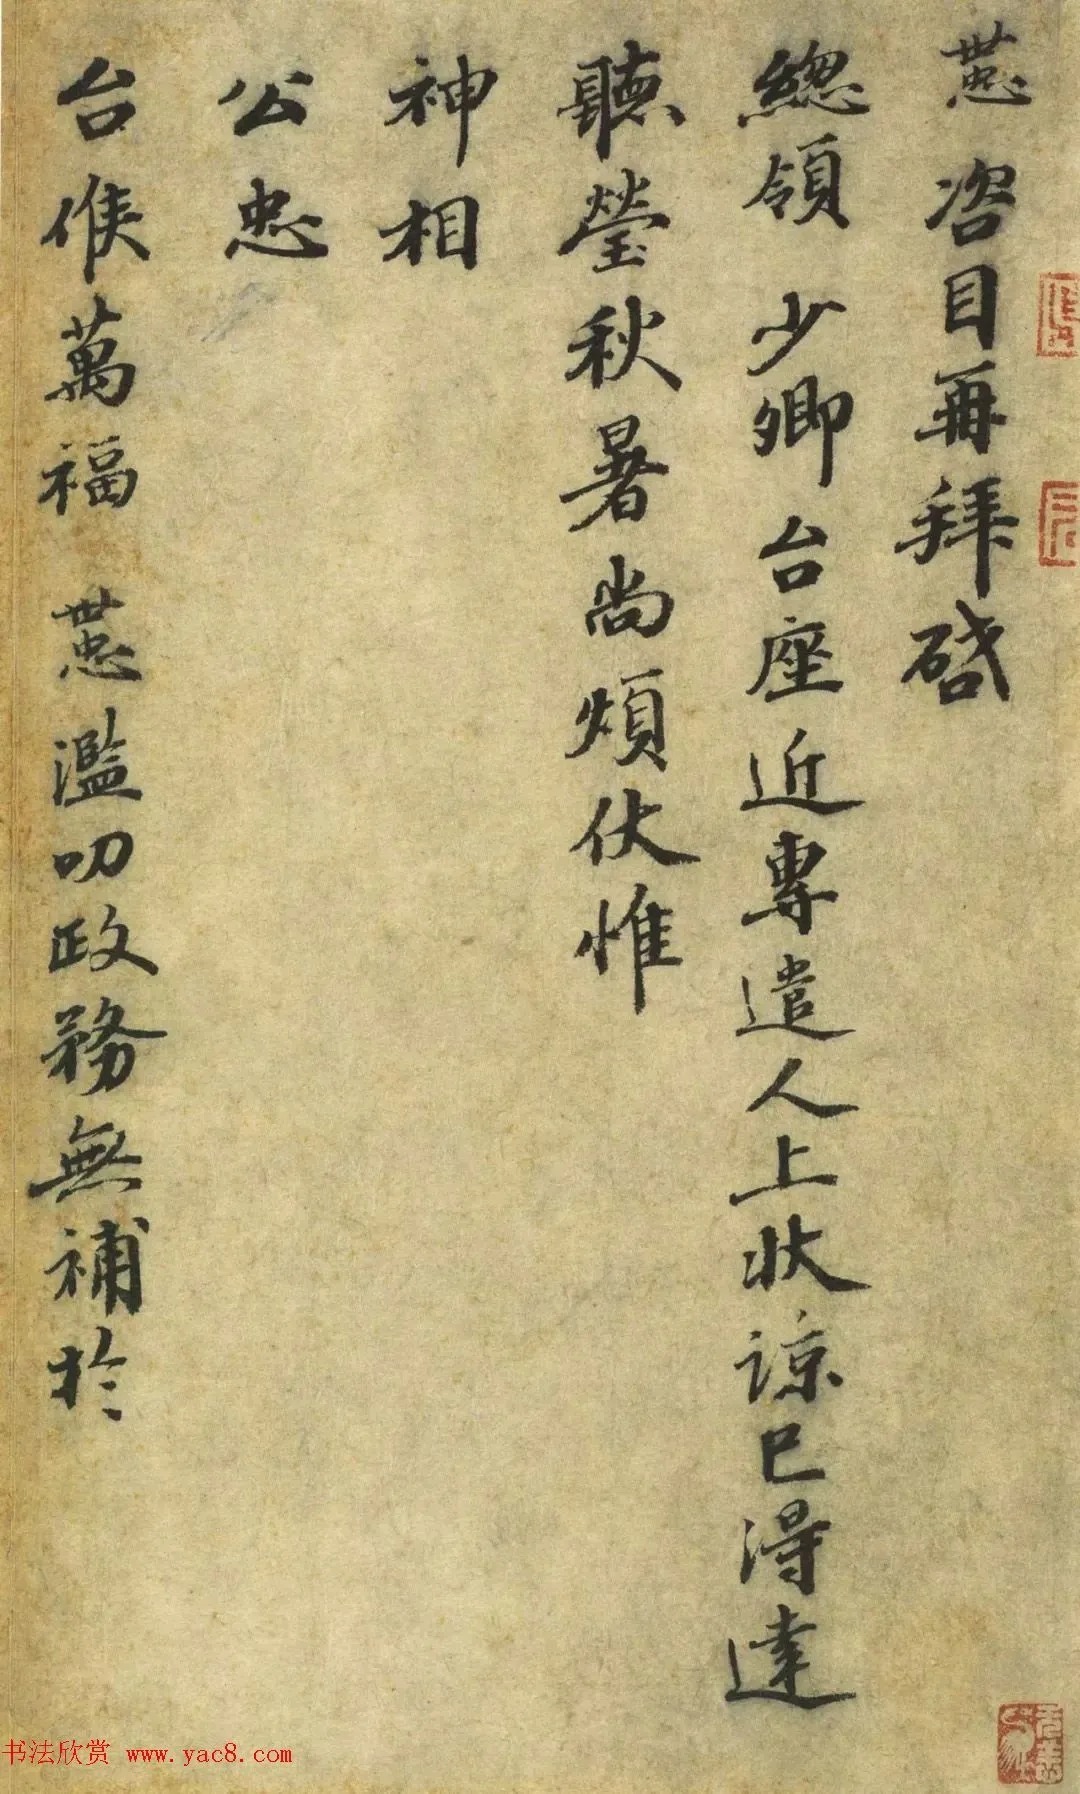 懘咨目再拜啓
總領少卿台座近專遣人上狀諒已得達
聽瑩秋暑尚煩伏惟
神相
公忠
台候萬福懘濫叨政務無補於
书法欣赏 www.yac8.com